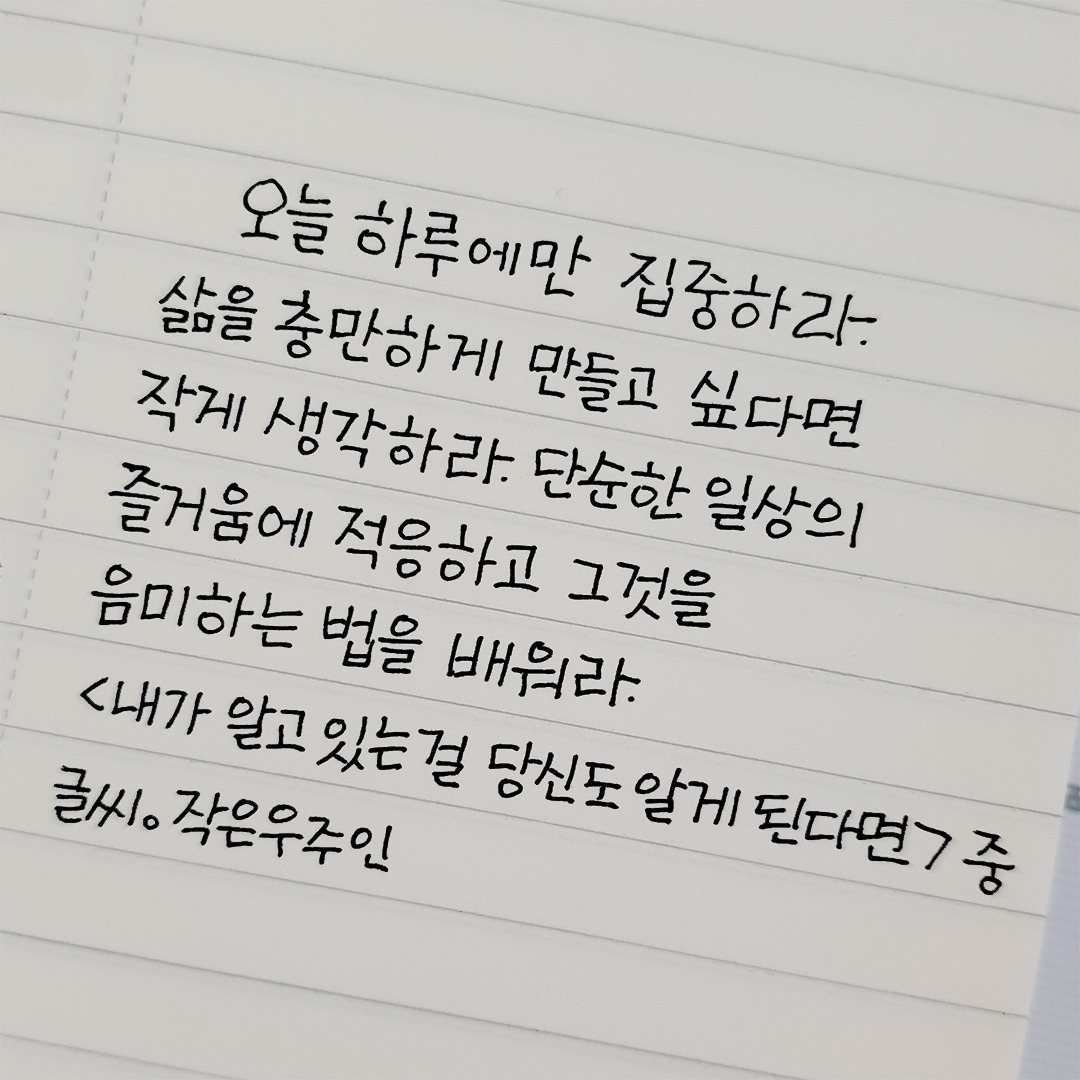 오늘 하루에만 집중하라.
삶을 충만하게 만들고 싶다면
작게 생각하라. 단순한 일상의
즐거움에 적응하고 그것을
음미하는 법을 배워라.
<내가 알고 있는걸 당신도 알게 된다면> 중
글씨。작은우주인